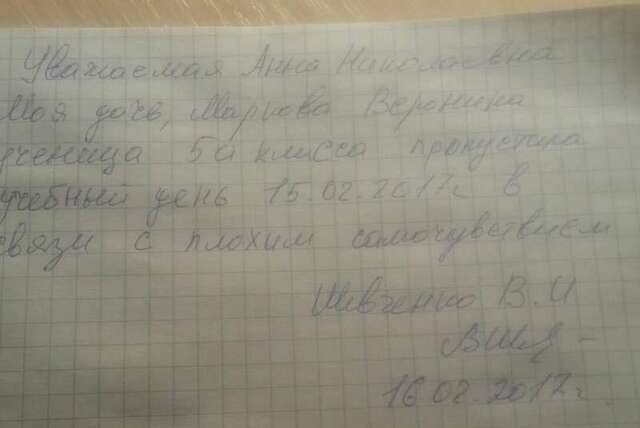 Уважаемая Анна Николаевна
Моя дочь, Маркова Вероника
ученица 5а класса пропустила
учебный день 15.02.2017г. в
связи с плохим самочувствием
Шевченко В.И
16.02.2017г.